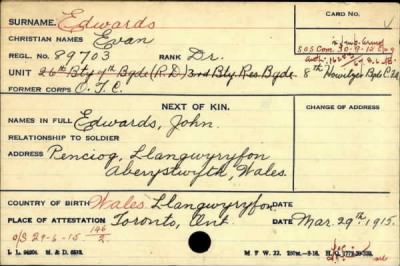 SURNAME. Edwards CARD NO.
CHRISTIAN NAMES Evan
REGL. NO. 89703 RANK Dr. S.O.S. Can. 30-9-15
UNIT 26th Bty 7th Bgde (R.D.) 3rd Bty Res Bgde. 8th Howitzer Bgde C.E.F.
FORMER CORPS O.T.C.
NEXT OF KIN. CHANGE OF ADDRESS
NAMES IN FULL Edwards, John.
RELATIONSHIP TO SOLDIER
ADDRESS Penciog, Llangwyryfon
Aberystwyth, Wales.
COUNTRY OF BIRTH Wales Llangwyryfon
PLACE OF ATTESTATION Toronto, Ont. DATE Mar. 29th 1915.
O/S 29-6-15 146/2
M. F. W. 22.